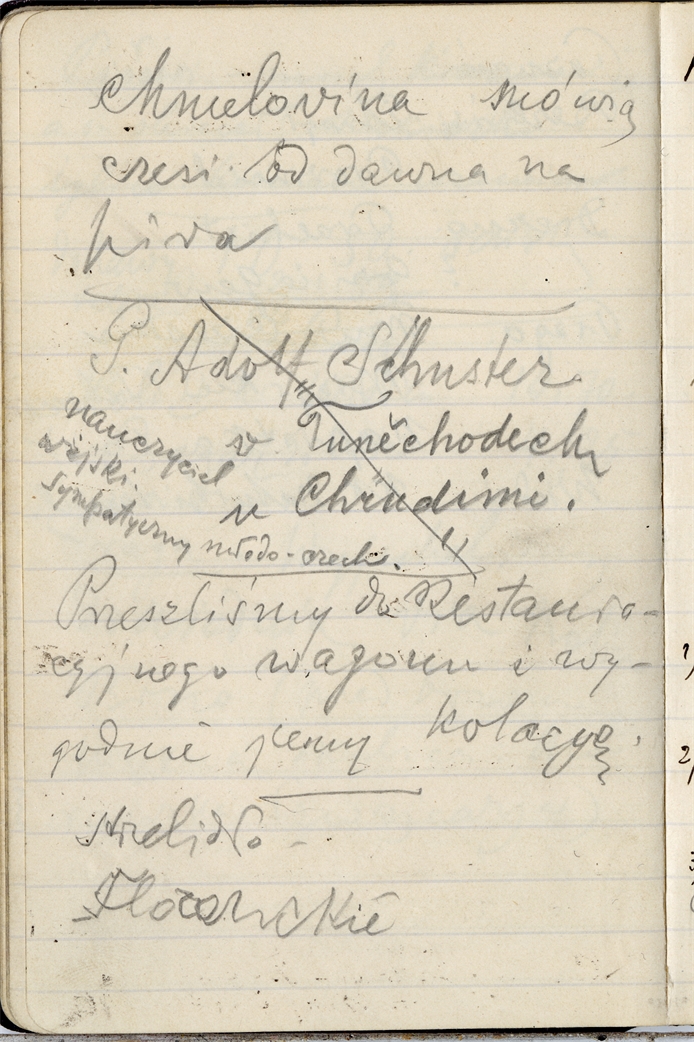 chmelovina mówią
czesi od dawna na
piva
P. Adolf Schuster
w Tuněchodech
u Chrudimi.
nauczyciel
wiejski.
sympatyczny młodo-czech.
Przeszliśmy do Restaura-
cyjnego wagonu i wy-
godnie jemy kolacyę.
strelidło -